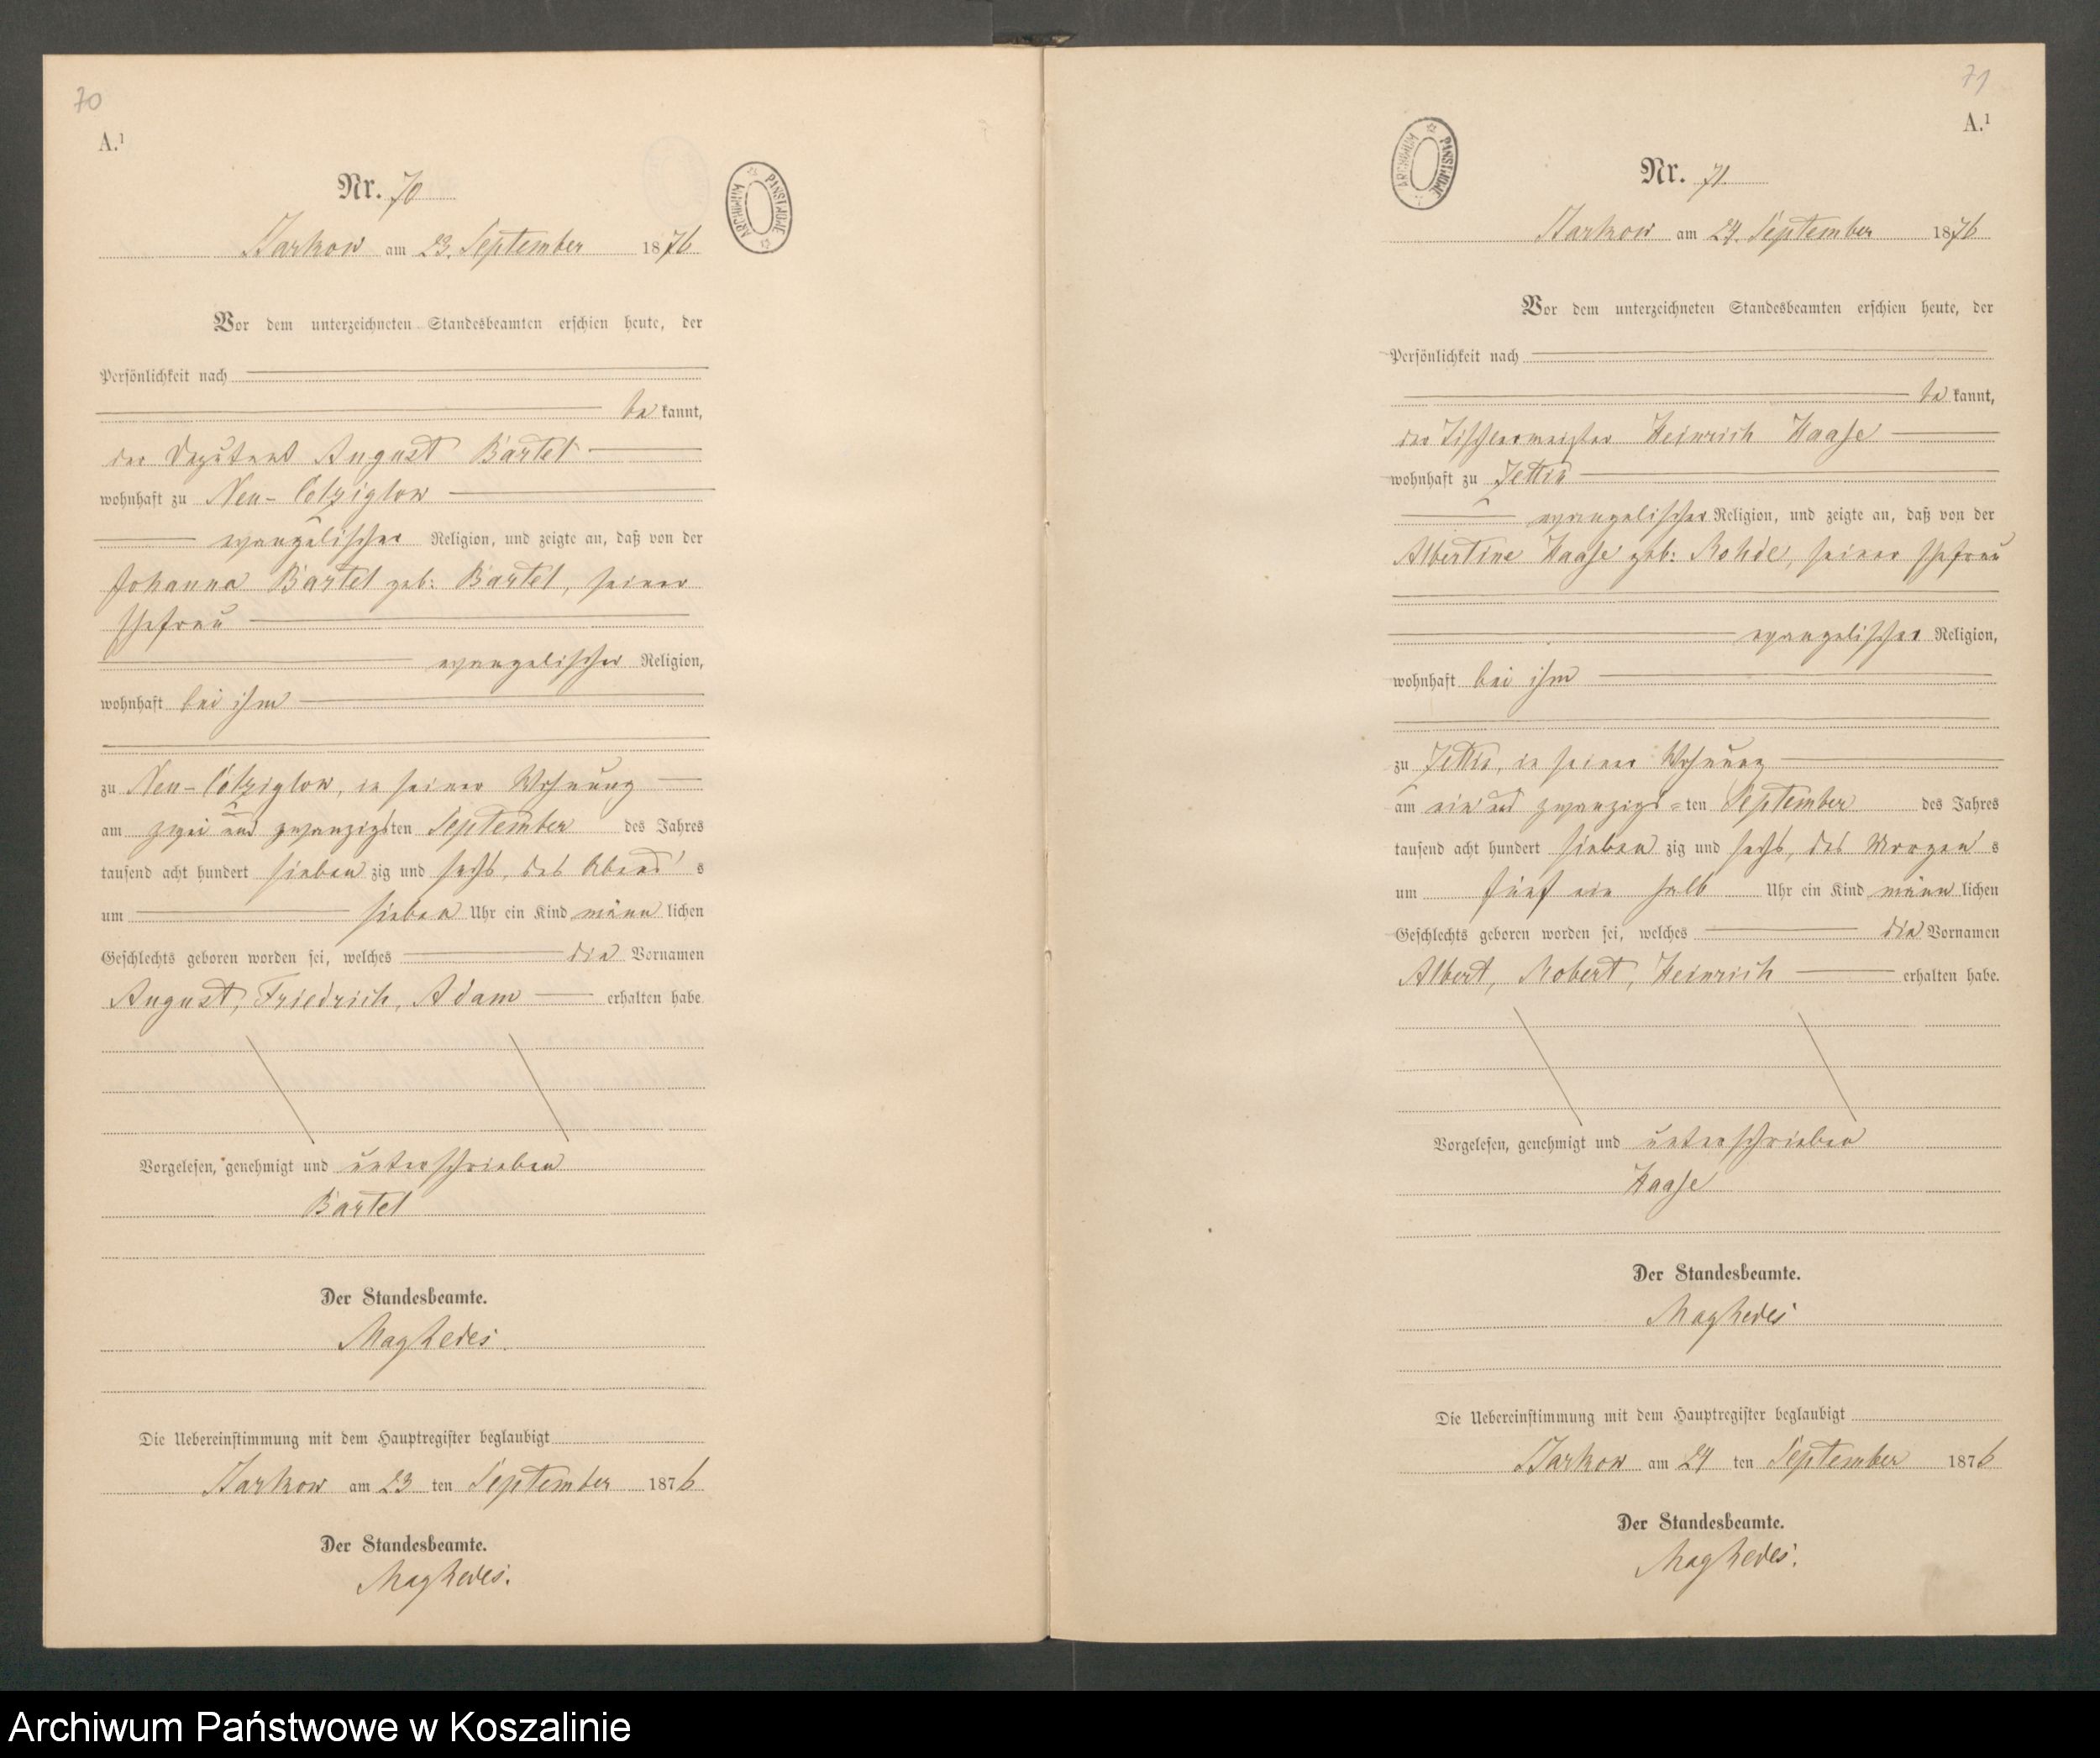 70
A.¹
Nr. 70
ARCHIWUM PAŃSTWOWE
Starkow am 23. September 1876
Vor dem unterzeichneten Standesbeamten erschien heute, der
Persönlichkeit nach
be kannt,
der Deputant August Bartel
wohnhaft zu Neu-
evangelischer Religion, und zeigte an, daß von der
Johanna Bartel geb: Bartel, seiner
Ehefrau
evangelischer Religion,
wohnhaft bei ihm
zu Neu- in seiner Wohnung
am zwei und zwanzigsten September des Jahres
tausend acht hundert sieben zig und sechs, des Abend s
um sieben Uhr ein Kind männ lichen
Geschlechts geboren worden sei, welches die Vornamen
August, Friedrich, Adam erhalten habe.
Vorgelesen, genehmigt und unterschrieben
Bartel
Der Standesbeamte.
Die Uebereinstimmung mit dem Hauptregister beglaubigt
Starkow am 23 ten September 1876
Der Standesbeamte.
71
A.¹
Nr. 71.
ARCHIWUM PAŃSTWOWE
Starkow am 24. September 1876
Vor dem unterzeichneten Standesbeamten erschien heute, der
Persönlichkeit nach
be kannt,
der Tischlermeister Heinrich Haase
wohnhaft zu
evangelischer Religion, und zeigte an, daß von der
Albertine Haase geb: Rohde, seiner Ehefrau
evangelischer Religion,
wohnhaft bei ihm
zu in seiner Wohnung
am ein und zwanzigs=ten September des Jahres
tausend acht hundert sieben zig und sechs, des Morgen s
um fünf ein halb Uhr ein Kind männ lichen
Geschlechts geboren worden sei, welches die Vornamen
Albert, Robert, Heinrich erhalten habe.
Vorgelesen, genehmigt und unterschrieben
Haase
Der Standesbeamte.
Die Uebereinstimmung mit dem Hauptregister beglaubigt
Starkow am 24 ten September 1876
Der Standesbeamte.
Archiwum Państwowe w Koszalinie